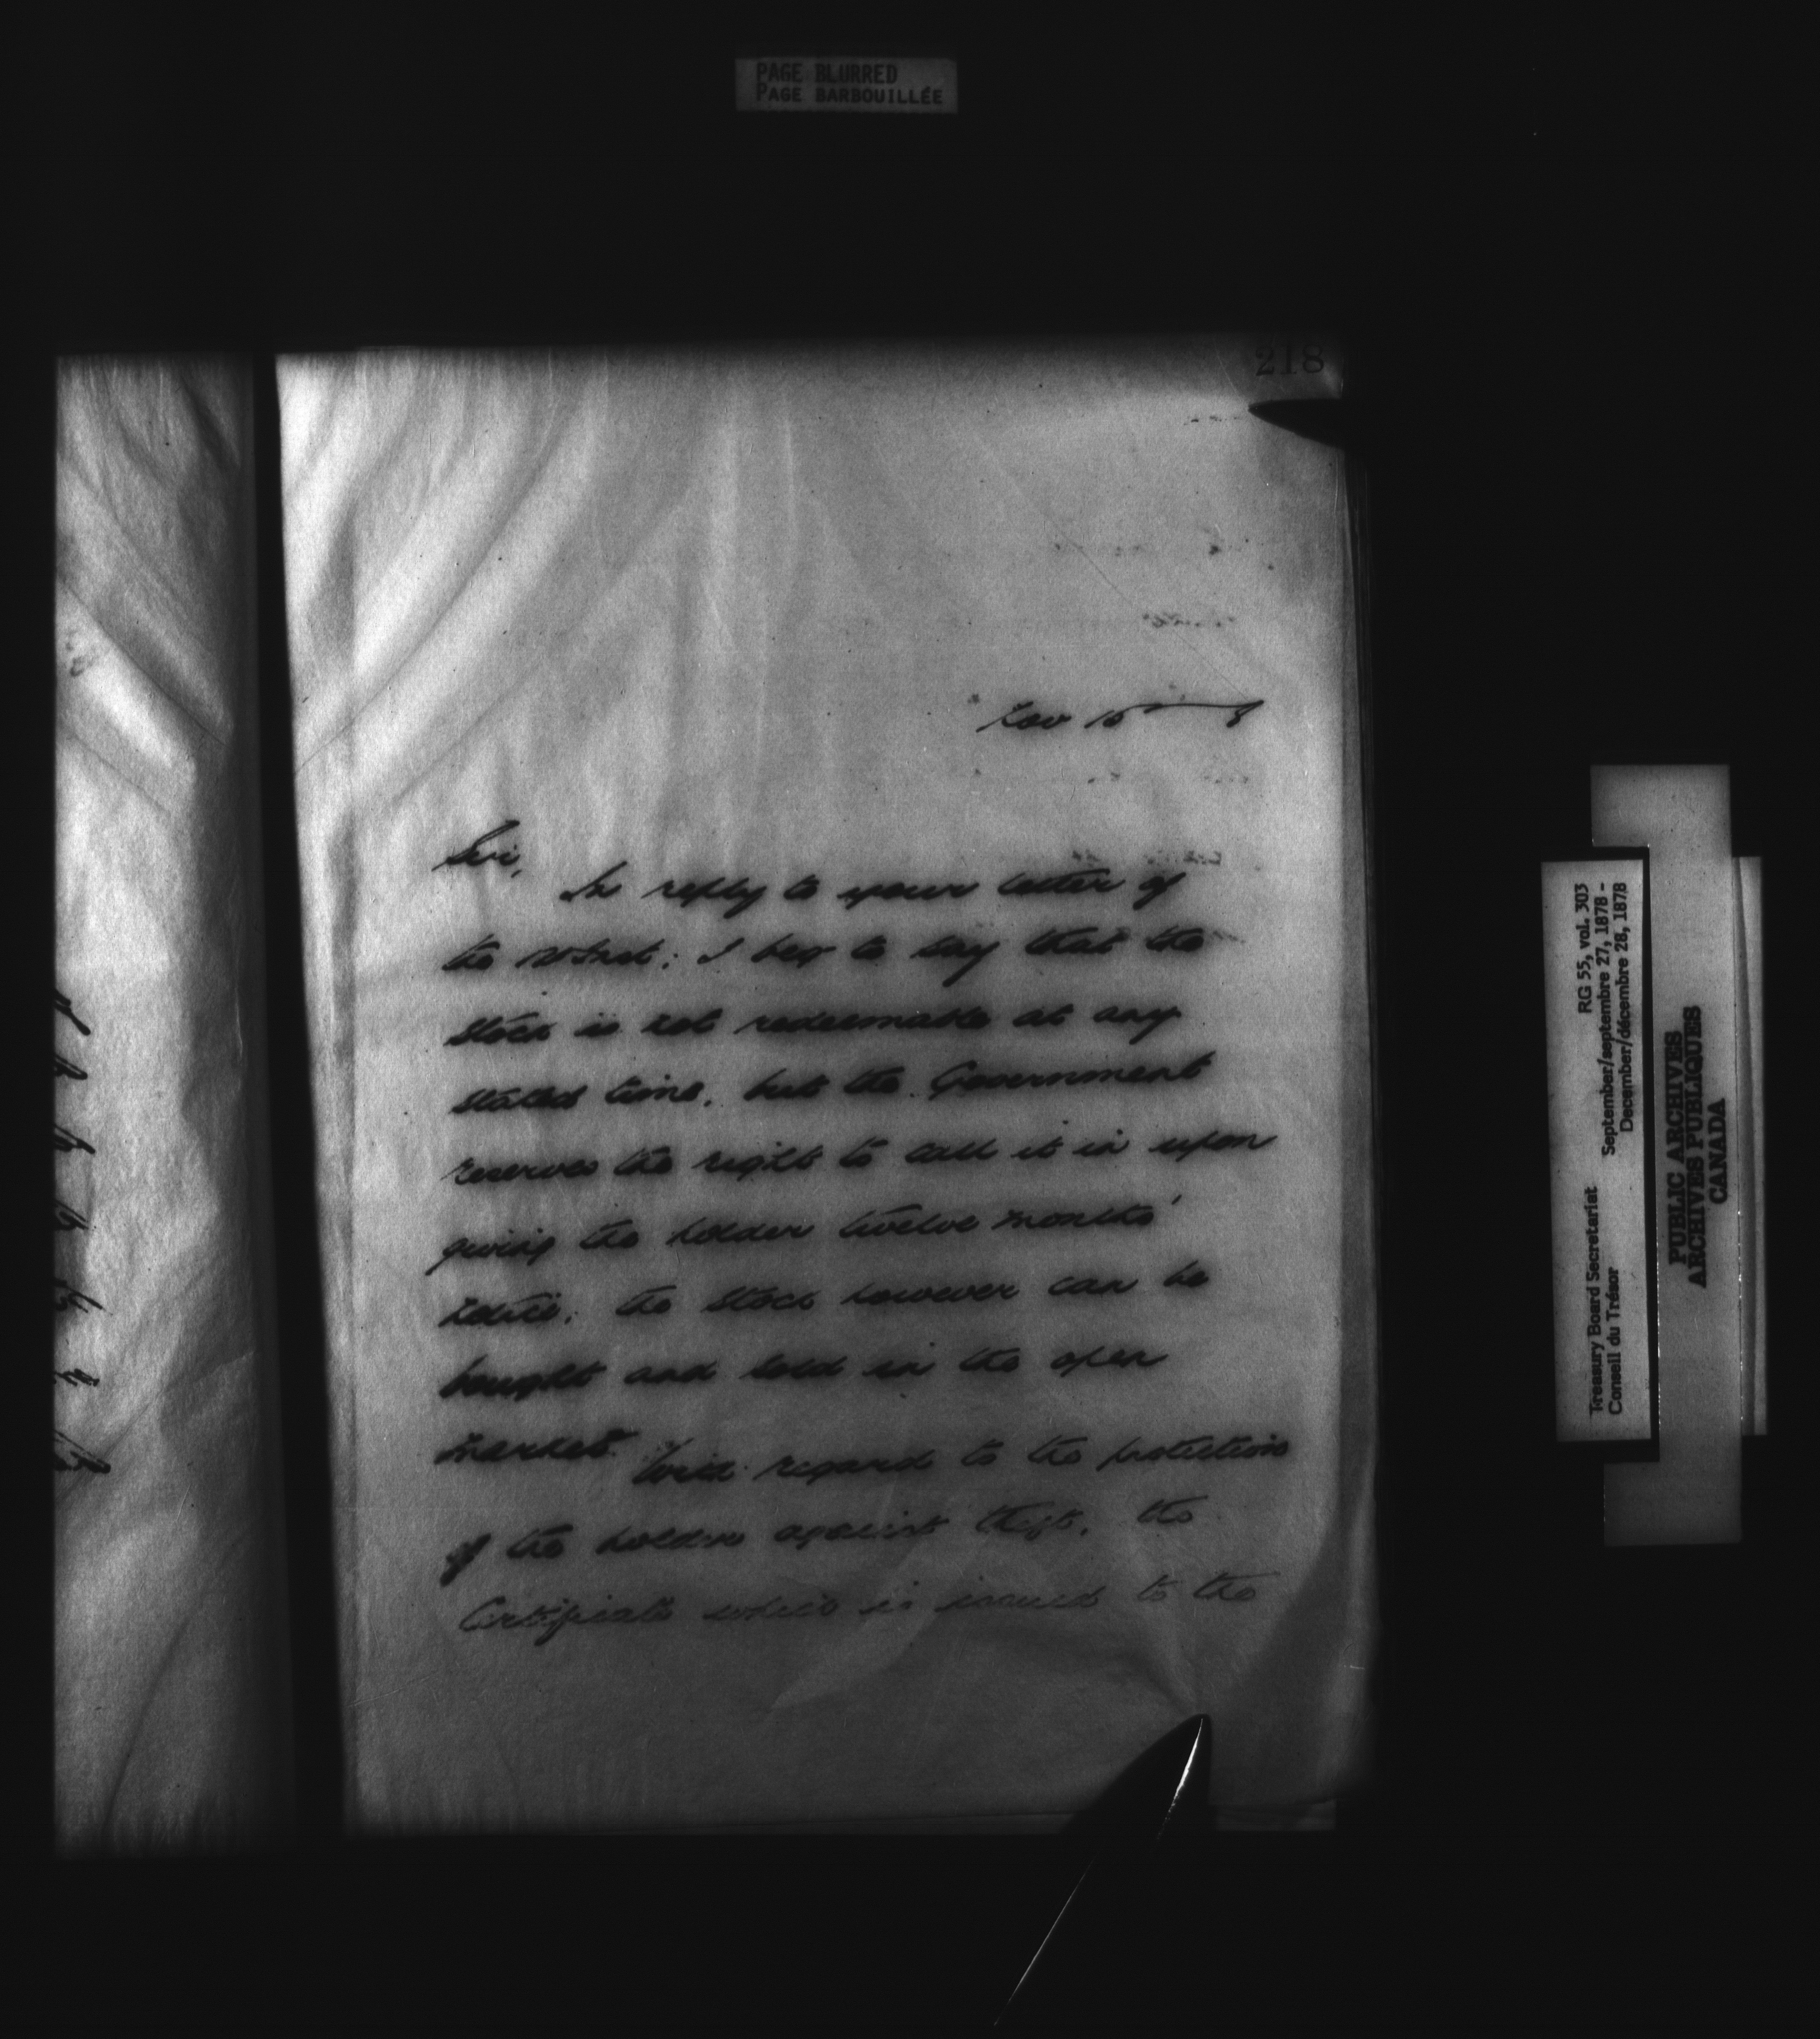 PAGE BLURRED
PAGE BARBOUILLÉE
218
Nov 15 8
Sir,
In reply to your letter of
the inst: I beg to say that the
Stock is not redeemable at any
stated time, but the Government
reserves the right to call it in upon
giving the holder twelve months'
notice; the Stock however can be
bought and sold in the open
market.
With regard to the protection
of the holder against theft, the
Certificate which is issued to the
RG 55, vol. 303
September/septembre 27, 1878 -
December/décembre 28, 1878
Treasury Board Secretariat
Conseil du Trésor
PUBLIC ARCHIVES
ARCHIVES PUBLIQUES
CANADA